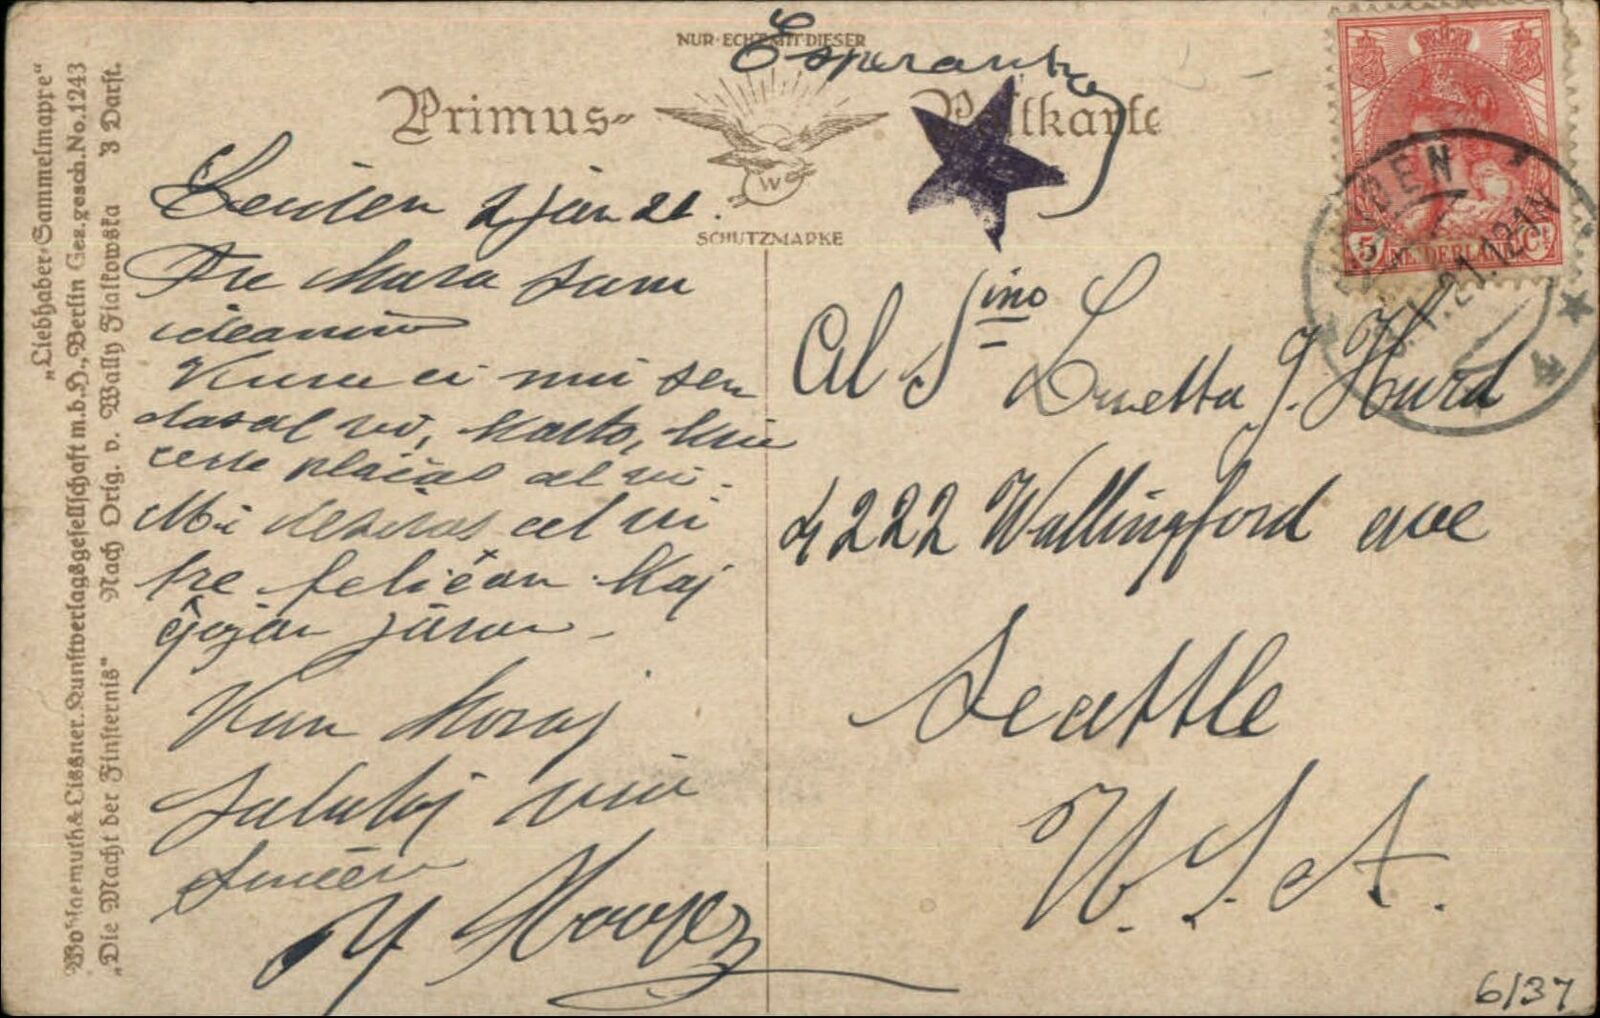 NUR ECHT MIT DIESER
Esperanto
Primus- Postkarte
W
SCHUTZMARKE
„Liebhaber-Sammelmappe“
Wohlgemuth & Lissner, Kunstverlagsgesellschaft m.b.H., Berlin Ges. gesch. No. 1243
„Die Macht der Finsternis“ Nach Orig. v. Wally Fialkowska 3 Darst.
Leiden 2 jan 21.
Tre Kara Sam
ideanino
Kune ĉi mi sen
das al vi, karto, kiu
certe plaĉas al vi.
Mi deziras al vi
tre feliĉan kaj
ĝojan jaron
Kun koraj
Salutoj via
Sincera
5 NEDERLAND Ct
LEIDEN
4
Al Sino Luetta J. Hurd
4222 Wallingford ave
Seattle
U.S.A.
6/37